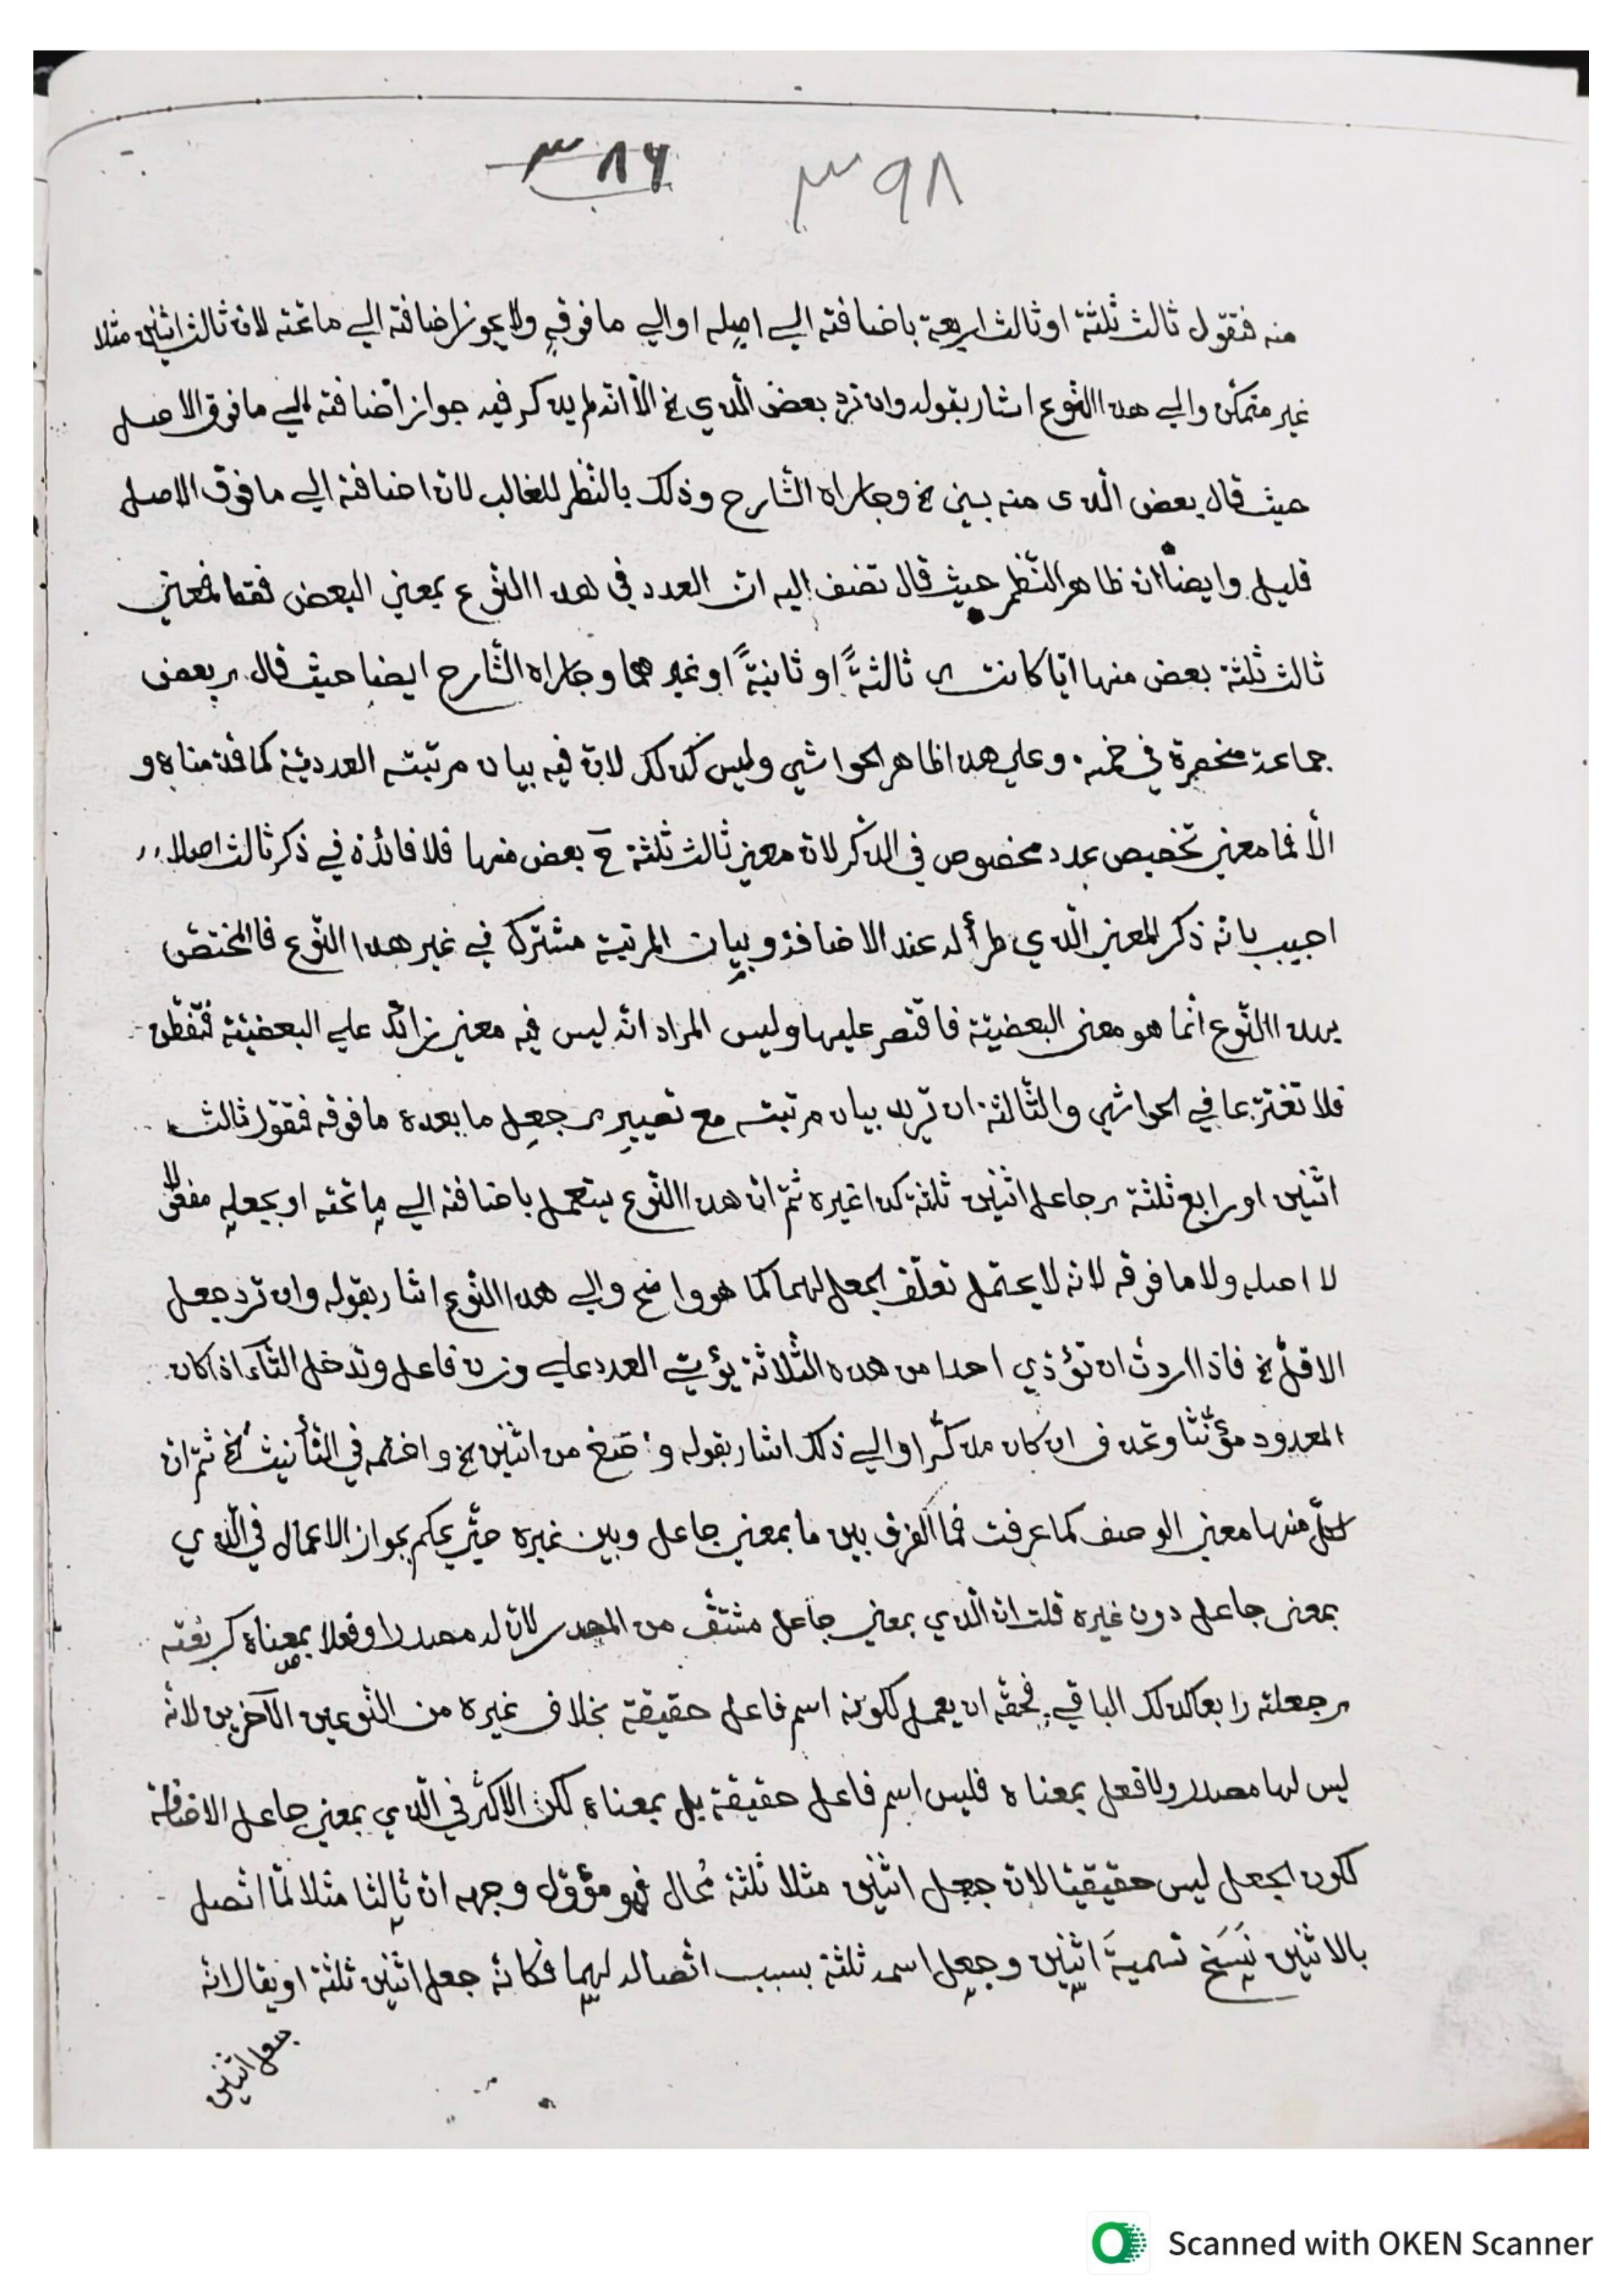 ٣٨٦ ٣٩٨
منه فتقول ثالث ثلثة او ثالث اربعة باضافته الي اصله او الي ما فوقه ولا يجوز اضافته الي ما تحته لان ثالث اثنين مثلا
غير متمكن والي هذا النّوع اشار بقوله وان ترد بعض الّذي خ الّا انّه لم يذكر فيه جواز اضافته الي ما فوق الاصل
حيث قال بعض الّذي منه بني خ وجاراه الشّارح وذلك بالنّظر للغالب لان اضافته الي ما فوق الاصل
قليل وايضا ان ظاهر النّظم حيث قال تضف اليه ان العدد في هذا النّوع بمعني البعض فقط فمعني
ثالث ثلثة بعض منها ايّا كانت ثالثةً او ثانيةً او غيرهما وجاراه الشّارح ايضا حيث قال بعض
جماعة منحصرة في خمسة وعلي هذا ظاهر الحواشي وليس كذلك لان فيه بيان مرتبته العدديّة كما قدّمناه و
الّا فما معني تخصيص عدد مخصوص في الذّكر لان معني ثالث ثلثة ح بعض منها فلا فائدة في ذكر ثالث اصلا
اجيب بانّه ذكر المعني الّذي طرأ له عند الاضافة وبيان المرتبة مشترك في غير هذا النّوع فالمختصّ
بهذا النّوع انّما هو معني البعضيّة فاقتصر عليها وليس المراد انّه ليس فيه معني زائد علي البعضيّة فتفطّن
فلا تغترّ بما في الحواشي والثّالثة ان تريد بيان مرتبته مع تصيير جعل ما بعده ما فوقه فتقول ثالث
اثنين او رابع ثلثة جاعل اثنين ثلثة كذا غيره ثمّ ان هذا النّوع يستعمل باضافته الي ما تحته او بجعله مفعولا
لا اصله ولا ما فوقه لانه لا يحتمل تعلّق الجعل لهما كما هو واضح والي هذا النّوع اشار بقوله وان ترد جعل
الاقلّ خ فاذا اردت ان تؤدّي احدا من هذه الثّلاثة يؤتي العدد علي وزن فاعل وتدخل التّاء اذا كان
المعدود مؤنّثا وتحذف ان كان مذكّرا والي ذلك اشار بقوله وصغ من اثنين خ واختمه في التّأنيث خ ثمّ ان
لكلّ منها معني الوصف كما عرفت فما الفرق بين ما بمعني جاعل وبين غيره حتّي يحكم بجواز الاعمال في الّذي
بمعني جاعل دون غيره قلت ان الّذي بمعني جاعل مشتقّ من المصدر لان له مصدرا وفعلا بمعناه كربّعته
جعلته رابعا كذلك الباقي فحقّه ان يعمل لكونه اسم فاعل حقيقة بخلاف غيره من النّوعين الآخرين لانّه
ليس لها مصدر ولا فعل بمعناه فليس اسم فاعل حقيقة بل بمعناه لكن الاكثر في الّذي بمعني جاعل الاضافة
لكون الجعل ليس حقيقيّا لان جعل اثنين مثلا ثلثة مُحال فهو مؤوّل وجهه ان ثالثا مثلا لمّا اتّصل
بالاثنين نَسَخ تسميةَ اثنين وجعل اسمه ثلثة بسبب اتّصاله لهما فكانّه جعل اثنين ثلثة او يقال انّه
جعل اثنين
Scanned with OKEN Scanner